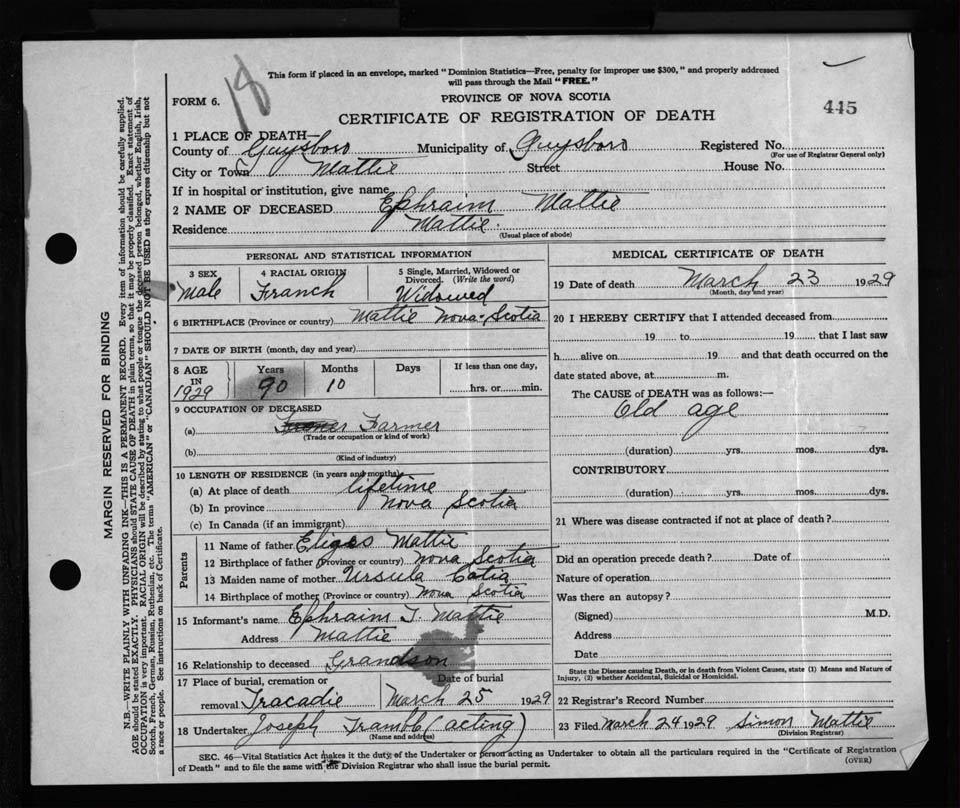 18
This form if placed in an envelope, marked "Dominion Statistics—Free, penalty for improper use $300," and properly addressed
will pass through the Mail "FREE."
FORM 6.
PROVINCE OF NOVA SCOTIA
445
CERTIFICATE OF REGISTRATION OF DEATH
1 PLACE OF DEATH—
County of Guysboro Municipality of Guysboro Registered No.
(For use of Registrar General only)
City or Town Mattie Street House No.
If in hospital or institution, give name
2 NAME OF DECEASED Ephraim Mattie
Residence Mattie
(Usual place of abode)
PERSONAL AND STATISTICAL INFORMATION
3 SEX 4 RACIAL ORIGIN 5 Single, Married, Widowed or
Divorced. (Write the word)
Male Franch Widowed
6 BIRTHPLACE (Province or country) Mattie Nova Scotia
7 DATE OF BIRTH (month, day and year)
8 AGE Years Months Days If less than one day,
IN
1929 90 10 hrs. or min.
9 OCCUPATION OF DECEASED
(a) Farmer
(Trade or occupation or kind of work)
(b)
(Kind of industry)
10 LENGTH OF RESIDENCE (in years and months)
(a) At place of death lifetime
(b) In province Nova Scotia
(c) In Canada (if an immigrant)
Parents
11 Name of father Mattie
12 Birthplace of father (Province or country) Nova Scotia
13 Maiden name of mother Ursula
14 Birthplace of mother (Province or country) Nova Scotia
15 Informant's name Ephraim J. Mattie
Address Mattie
16 Relationship to deceased Grandson
17 Place of burial, cremation or Date of burial
removal Tracadie March 25 1929
18 Undertaker Joseph (acting)
(Name and address)
MEDICAL CERTIFICATE OF DEATH
19 Date of death March 23 1929
(Month, day and year)
20 I HEREBY CERTIFY that I attended deceased from
19 to 19 that I last saw
h alive on 19 and that death occurred on the
date stated above, at m.
The CAUSE of DEATH was as follows:—
Old age
(duration) yrs. mos. dys.
CONTRIBUTORY
(duration) yrs. mos. dys.
21 Where was disease contracted if not at place of death?
Did an operation precede death? Date of
Nature of operation
Was there an autopsy?
(Signed) M.D.
Address
Date
State the Disease causing Death, or in death from Violent Causes, state (1) Means and Nature of
Injury, (2) whether Accidental, Suicidal or Homicidal.
22 Registrar's Record Number
23 Filed March 24 1929 Simon Mattie
(Division Registrar)
SEC. 46—Vital Statistics Act makes it the duty of the Undertaker or person acting as Undertaker to obtain all the particulars required in the "Certificate of Registration
of Death" and to file the same with the Division Registrar who shall issue the burial permit.
(OVER)
MARGIN RESERVED FOR BINDING
N.B.—WRITE PLAINLY WITH UNFADING INK—THIS IS A PERMANENT RECORD. Every item of information should be carefully supplied.
AGE should be stated EXACTLY. PHYSICIANS should STATE CAUSE OF DEATH in plain terms, so that it may be properly classified. Exact statement of
OCCUPATION is very important. RACIAL ORIGIN will be described by stating to what people or tongue the deceased person belonged, whether English, Irish,
Scotch, French, German, Russian, Ruthenian, etc. The terms "AMERICAN" or "CANADIAN" SHOULD NOT BE USED as they express citizenship but not
a race or people. See instructions on back of Certificate.